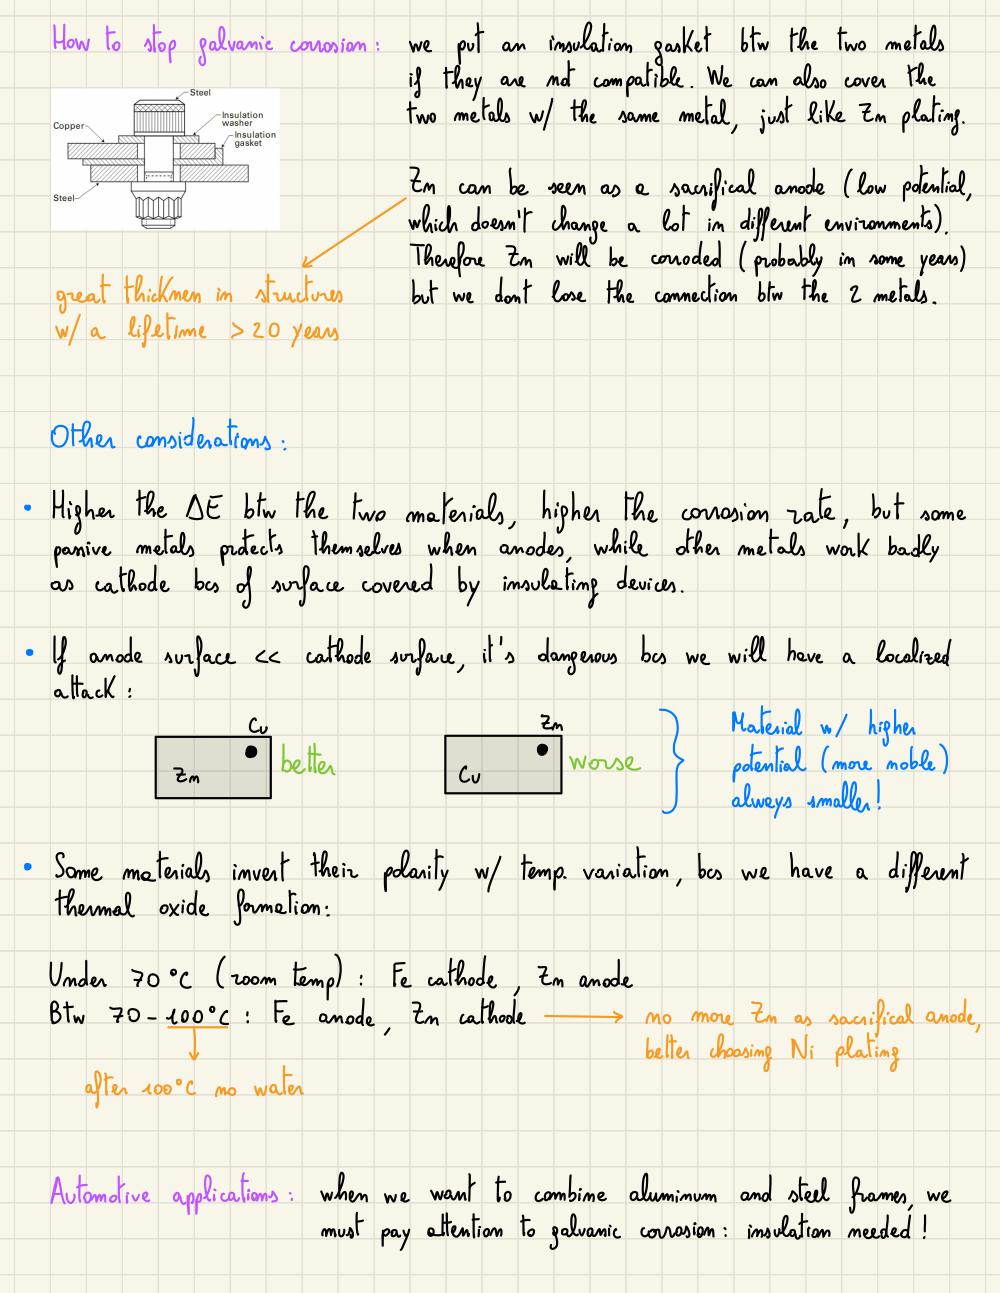 How to stop galvanic corrosion:
we put an insulation gasket btw the two metals
if they are not compatible. We can also cover the
two metals w/ the same metal, just like Zn plating.
Steel
Insulation
washer
Copper
Insulation
gasket
Steel
Zn can be seen as a sacrifical anode (low potential,
which doesn't change a lot in different environments).
Therefore Zn will be corroded (probably in some years)
but we dont lose the connection btw the 2 metals.
great thicknen in structures
w/ a lifetime > 20 years
Other considerations:
• Higher the ΔE btw the two materials, higher the corrosion rate, but some
passive metals protects themselves when anodes, while other metals work badly
as cathode bcs of surface covered by insulating devices.
• If anode surface << cathode surface, it's dangerous bcs we will have a localized
attack:
Cu
Zn
better
Zn
Cu
worse
Material w/ higher
potential (more noble)
always smaller!
• Some materials invert their polarity w/ temp. variation, bcs we have a different
thermal oxide formation:
Under 70°C (room temp): Fe cathode, Zn anode
Btw 70-100°C: Fe anode, Zn cathode
no more Zn as sacrifical anode,
better choosing Ni plating
after 100°C no water
Automotive applications:
when we want to combine aluminum and steel frames, we
must pay attention to galvanic corrosion: insulation needed!